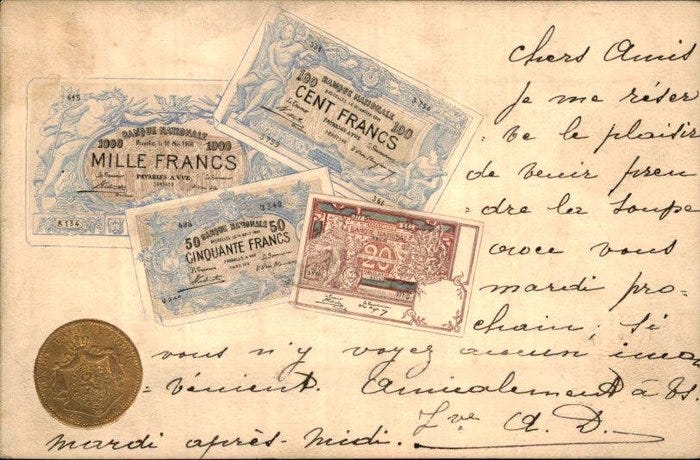 615
1000 BANQUE NATIONALE 1000
MILLE FRANCS
PAYABLES A VUE
A134
531
BANQUE NATIONALE
100 CENT FRANCS 100
PAYABLES A VUE
561
BANQUE NATIONALE
50 CINQUANTE FRANCS 50
PAYABLES A VUE
20
chers Amis
Je me réser
ve le plaisir
de venir pren
dre la soupe
avec vous
mardi pro-
chain, si
vous n'y voyez aucun incon
-vénient. Amicalement à Vs.
mardi après-midi. A. D.